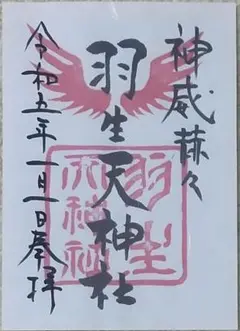 神威蘇々
羽生天神社
令和五年一月一日奉拝
羽生
天神社